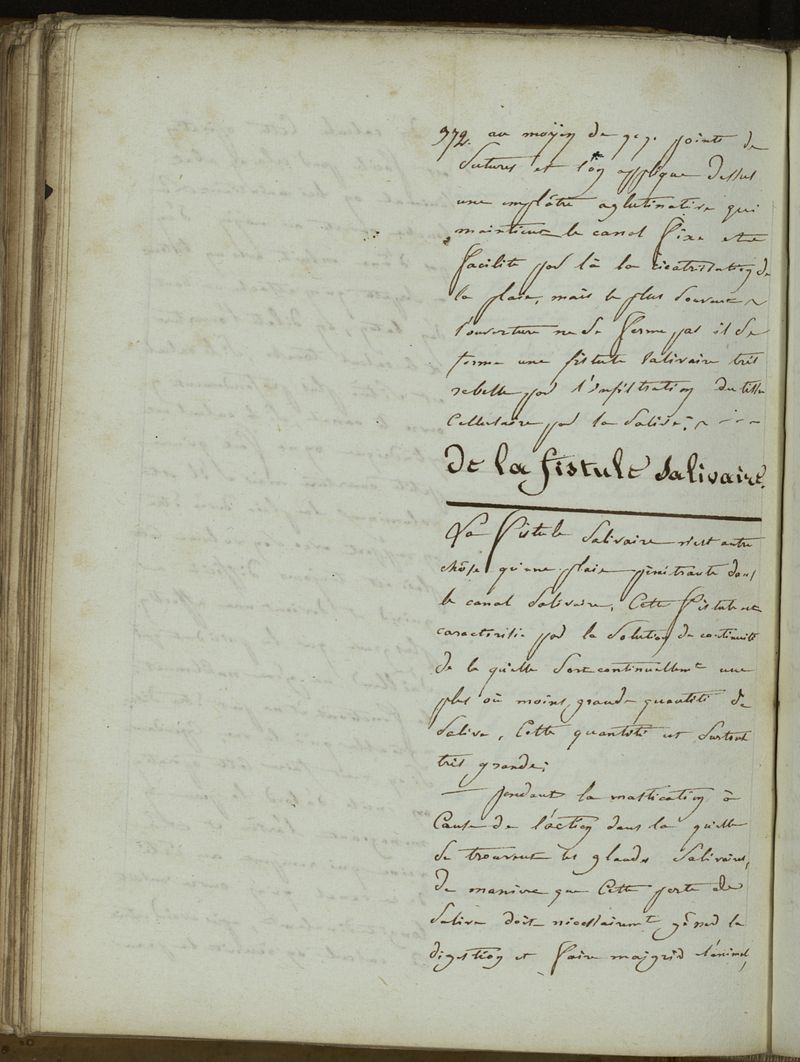 372. au moÿen de q.q. points de
Sutures et l'on applique dessus
une emplâtre aglutinative qui
maintient le canal fixe et
facilite par là la cicatrisation de
la plaie, mais le plus souvent ~
l'ouverture ne se ferme pas il se
forme une fistule salivaire très
rebelle par l'infiltration du tissu
Cellulaire par la salive; ~ - - -
De la fistule Salivaire.
La fistule Salivaire n'est autre
chose qu'une plaie pénétrante dans
le canal Salivaire, Cette fistule est
caractérisée par la Solution de continuité
de la quelle sort continuellemt une
plus où moins grande quantité de
Salive, Cette quantité est surtout
très grande;
— pendant la mastication à
Cause de l'action dans la quelle
se trouvent les glandes Salivaires,
de maniere que Cette perte de
Salive doit nécéssairemt gêner la
digestion et faire maigrir l'animal,